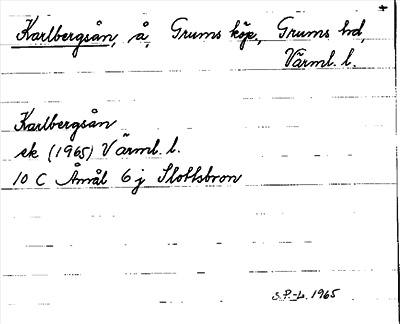 Karlbergsån, å, Grums köp., Grums hd,
Värml. l.
Karlbergsån
ek (1965) Värml. l.
10 C Åmål 6 j Slottsbron
S.P.-L. 1965